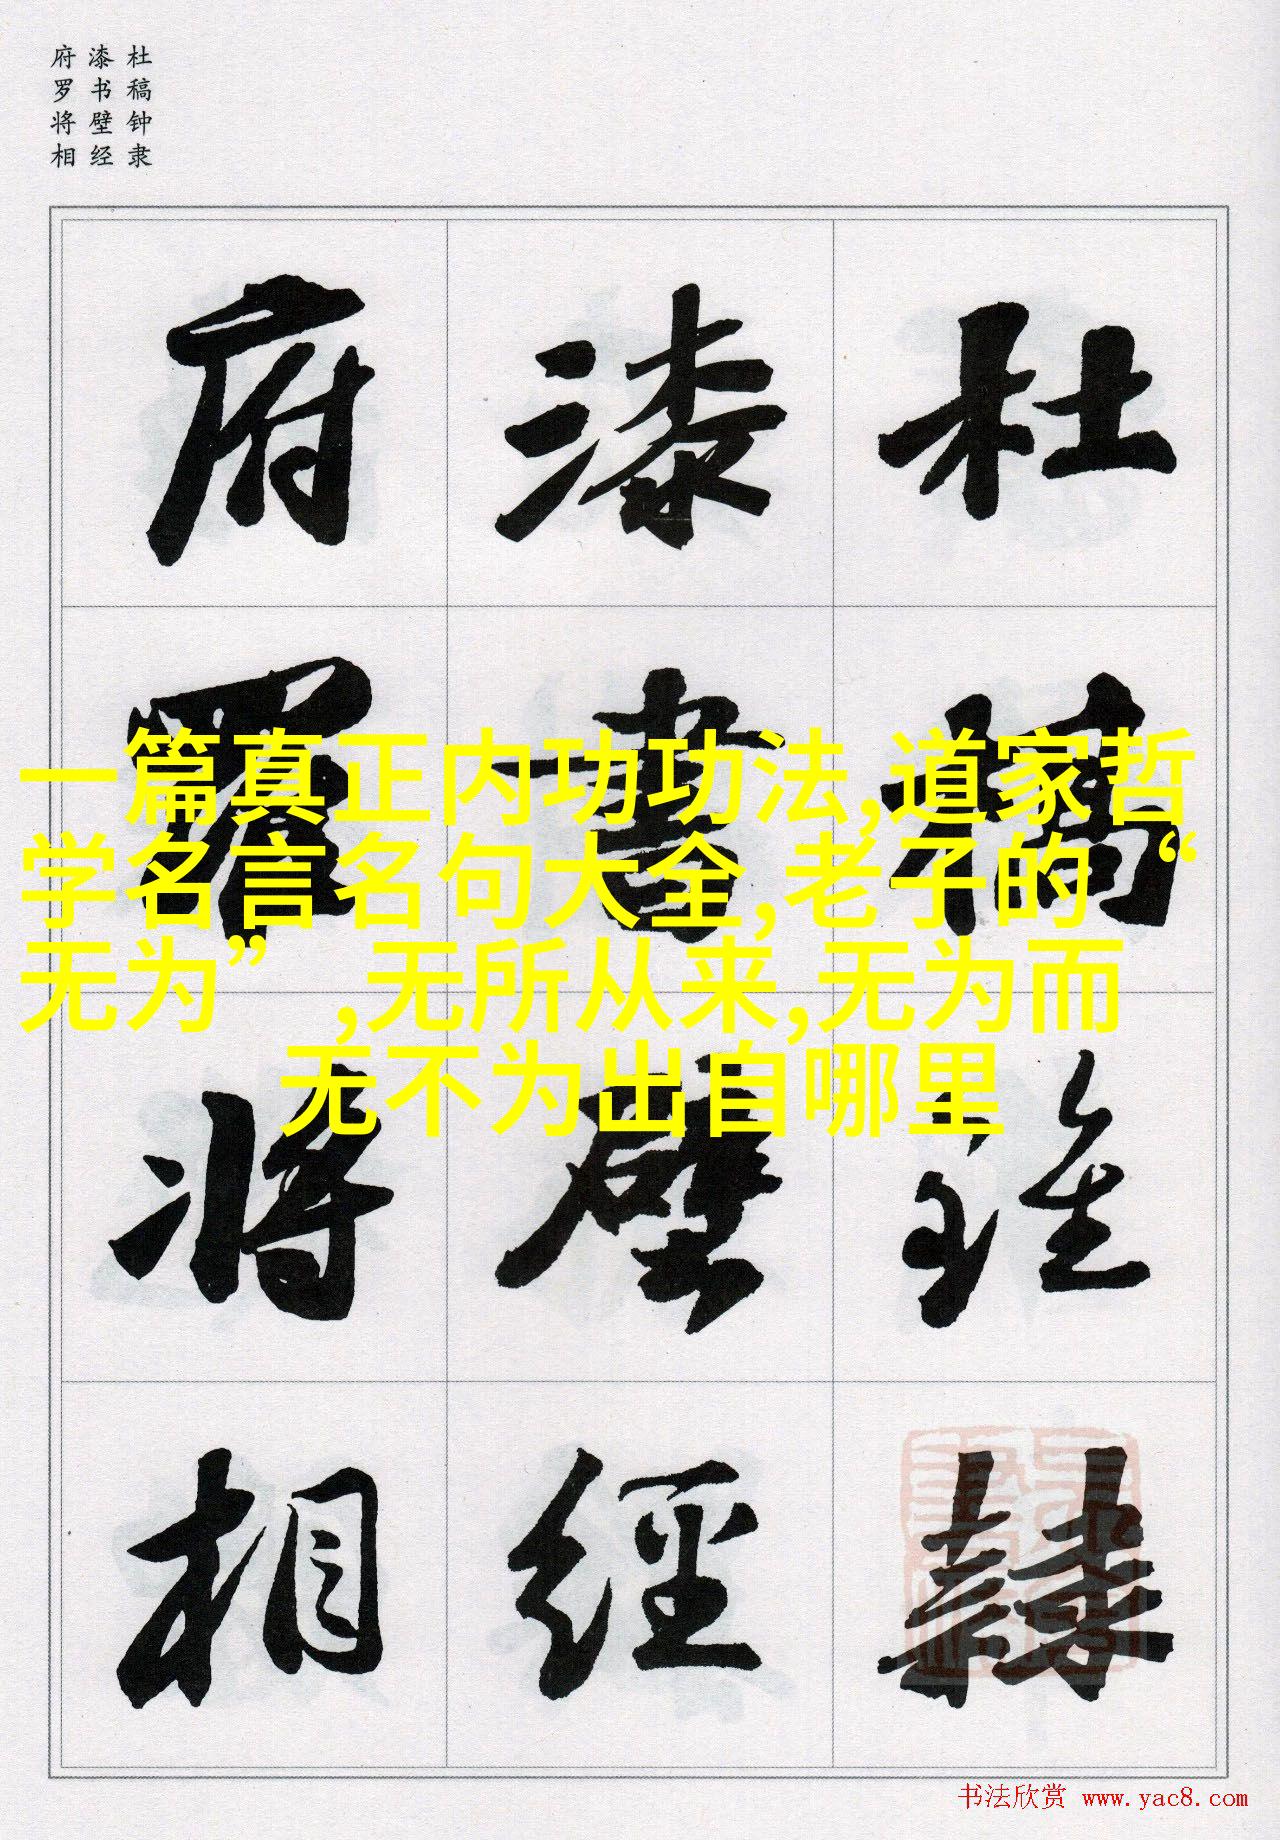 杜稿钟隶
漆书壁经
府罗将相
杜稿鍾隸
漆書壁經
府羅将相
一篇真正内功功法,道家哲
学名言名句大全,老子的“
无为”,无所从来,无为而
无不为出自哪里
书法欣赏 www.yac8.com